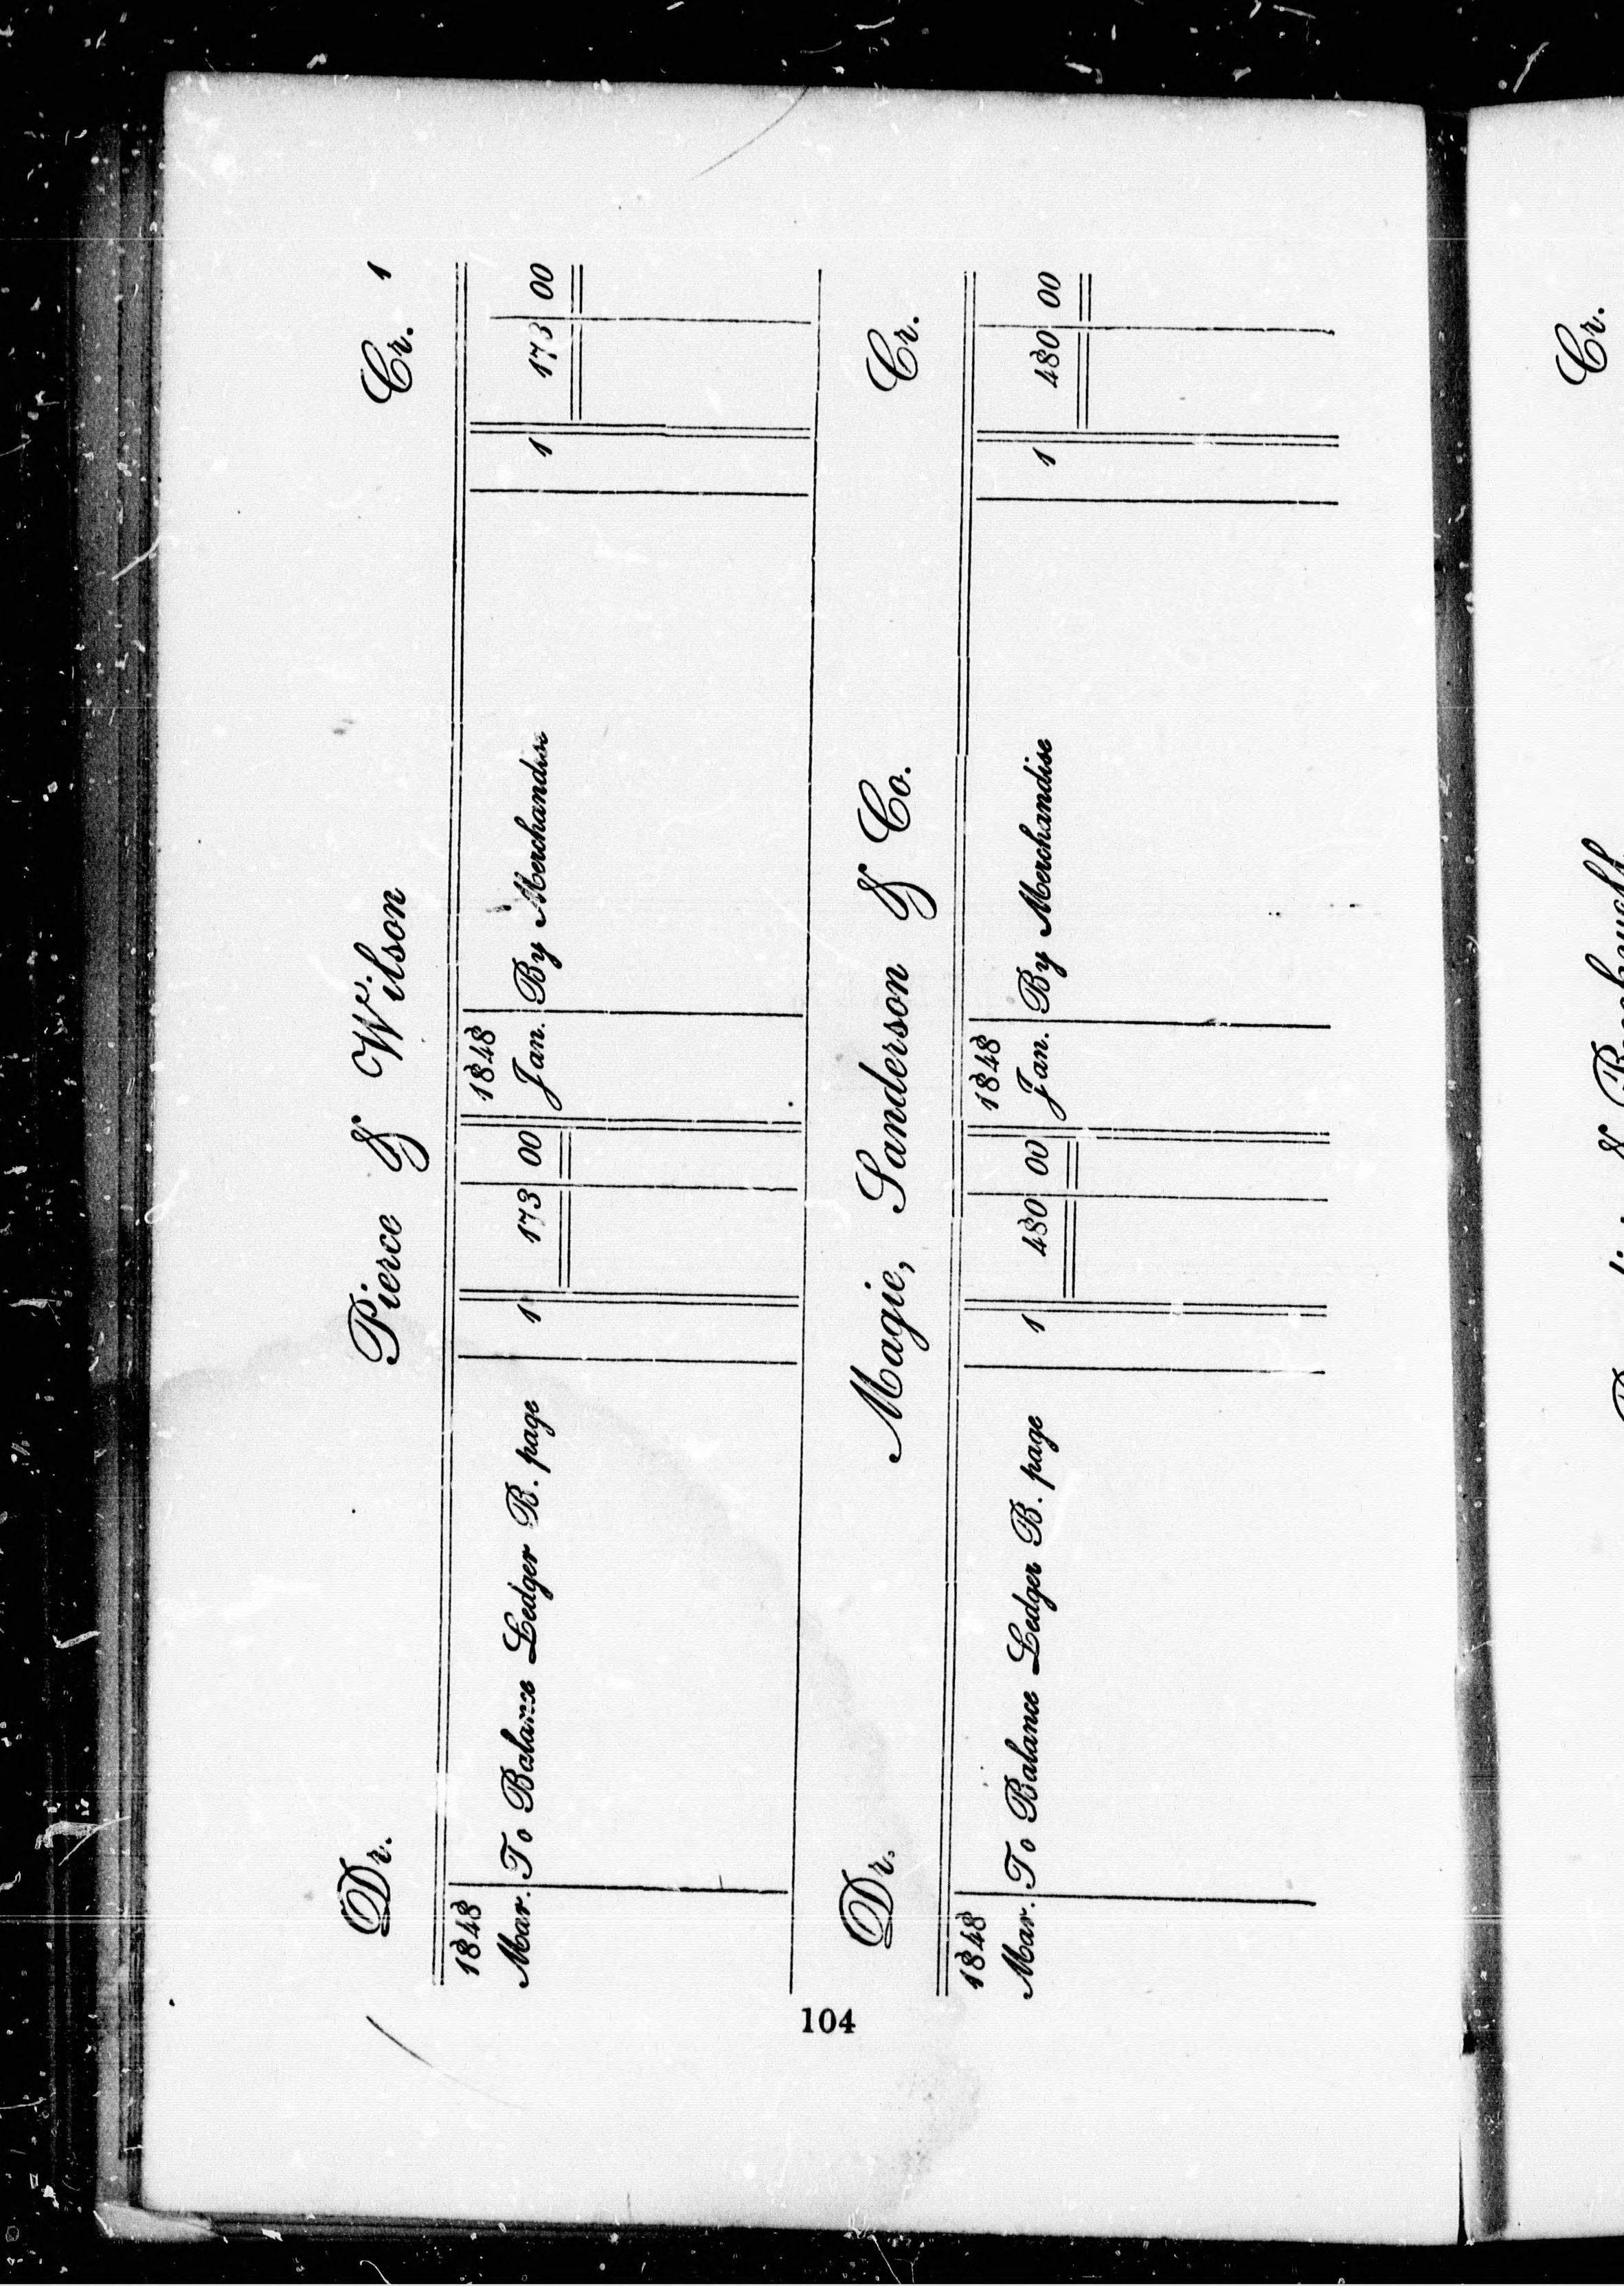 Dr. Pierce & Wilson Cr. 1
1848 1848
Mar. To Balance Ledger B. page 1 173 00 Jan. By Merchandise 1 173 00
Dr. Magie, Sanderson & Co. Cr.
1848 1848
Mar. To Balance Ledger B. page 1 480 00 Jan. By Merchandise 1 480 00
104
Cr.